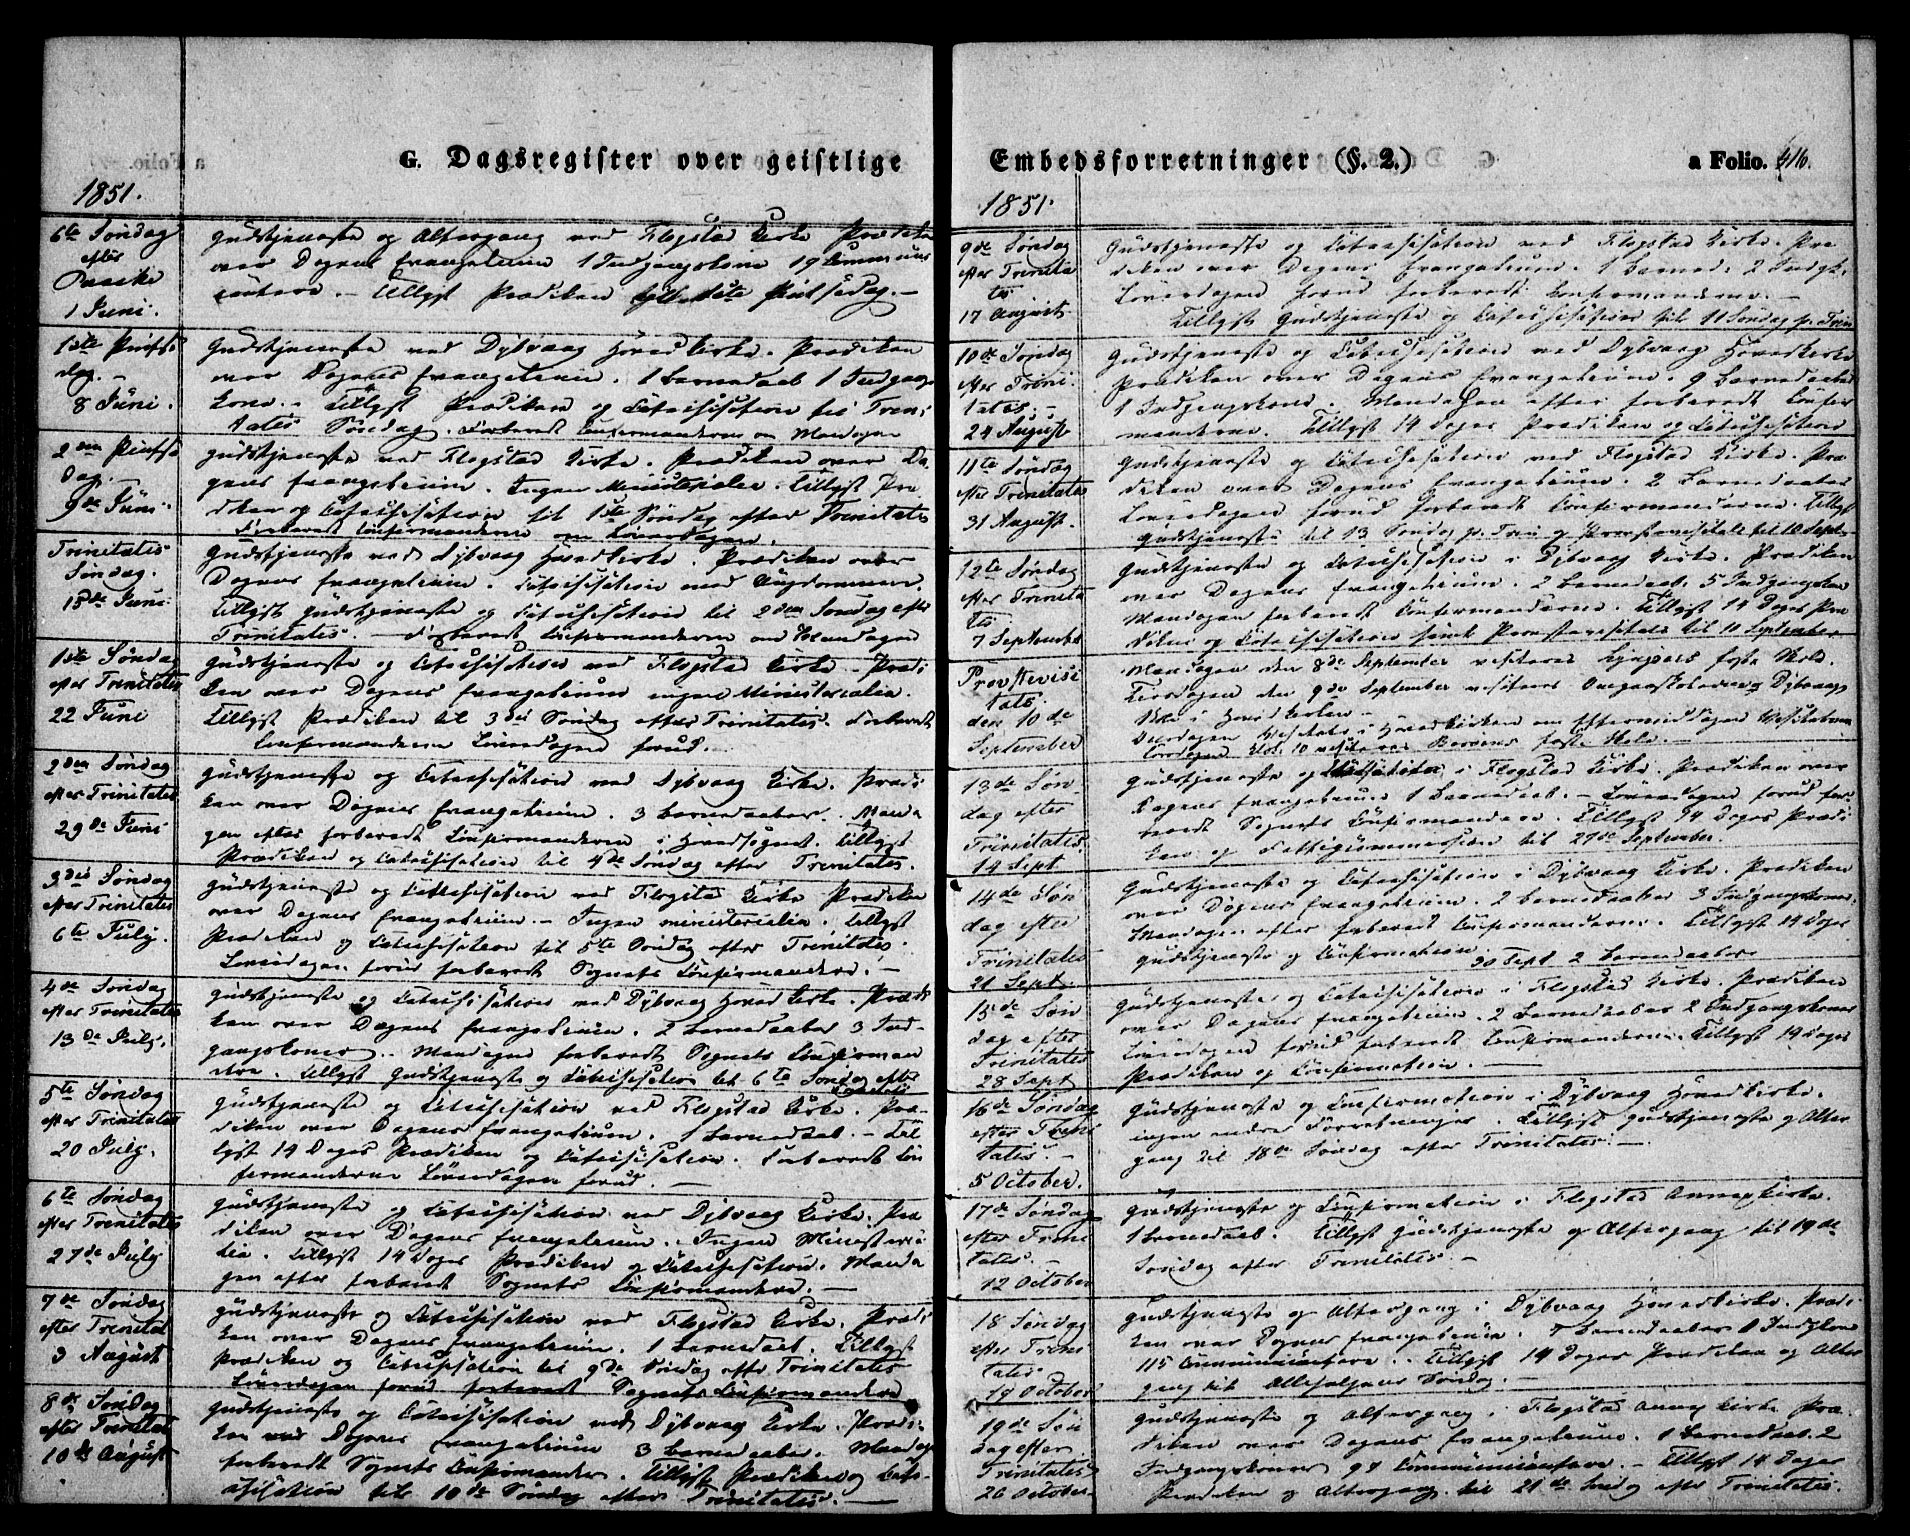 G. Dagsregister over geistlige
1851.
6te Søndag
efter
Paaske
1 Juni.
Gudstjeneste og Altergang ved Flagstad Kirke Prædiken
over Dagens Evangelium 1 Indgangskone 19 Communi
cantere. – Tillyst Prædiken til 1ste Pintsedag. –
1ste Pintse
dag. –
8 Juni.
Gudstjeneste ved Dybvaag Hovedkirke. Prædiken
over Dagens Evangelium. 1 Barnedaab 1 Indgangs
kone. – Tillyst Prædiken og Catechisation til Trini
tatis Søndag. Forberedt Confirmanderne om Mandagen
2den Pintse
dag. –
9de Juni.
Gudstjeneste ved Flagstad Kirke. Prædiken over Da-
gens Evangelium. Ingen Ministerialia. Tillyst Præ
diken og Catechisation til 1ste Søndag efter Trinitatis
Forberedt Confirmanderne om Løverdagen.
Trinitatis
Søndag.
15de Juni
Gudstjeneste ved Dybvaag Hovedkirke. Prædiken over
Dagens Evangelium. Catechisation med Ungdommen.
Tillyst Gudstjeneste og Catechisation til 2den Søndag efter
Trinitatis. – Forberedt Confirmanderne om Mandagen
1ste Søndag
efter Trinitatis
22 Juni
Gudstjeneste og Catechisation ved Flagstad Kirke – Prædi
ken over Dagens Evangelium ingen Ministerialia.
Tillyst Prædiken til 3die Søndag efter Trinitatis. Forberedt
Confirmanderne Løverdagen forud. –
2den Søndag
efter Trinitatis
29de Juni
Gudstjeneste og Catechisation ved Dybvaag Kirke. Prædi
ken over Dagens Evangelium. 3 Barnedaaber. Manda
gen efter forberedt Confirmanderne i Hovedsognet. Tillyst
Prædiken og Catechisation til 4de Søndag efter Trinitatis.
3die Søndag
efter Trinitatis
6te July.
Gudstjeneste og Catechisation ved Flagstad Kirke Prædiken
over Dagens Evangelium. – Ingen ministerialia. Tillyst
Prædiken og Catechisation til 5te Søndag efter Trinitatis.
Løverdagen forud forberedt Sognets Confirmandere. –
4de Søndag
efter Trinitatis
13de July.
Gudstjeneste og Catechisation ved Dybvaag Hovedkirke. Prædi
ken over Dagens Evangelium. 2 Barnedaaber 3 Ind-
gangskoner. Mandagen forberedt Sognets Confirman
dere. Tillyst Gudstjeneste og Catechisation til 6te Søndag efter
Trinitatis
5te Søndag
efter Trinitatis
20 July.
Gudstjeneste og Catechisation ved Flagstad Kirke. Præ-
diken over Dagens Evangelium. 1 Barnedaab. – Til
lyst 14 Dages Prædiken og Catechisation. Forberedt Con
firmanderne Løverdagen forud. –
6te Søndag
efter Trinitatis
27de July
Gudstjeneste og Catechisation ved Dybvaag Kirke. Præ
diken over Dagens Evangelium. Ingen Ministeria
lia. Tillyst 14 Dages Prædiken og Catechisation. Manda
gen efter forberedt Sognets Confirmandere. –
7de Søndag
efter Trinitat
3 August
Gudstjeneste og Catechisation ved Flagstad Kirke. Prædi
ken over Dagens Evangelium. 1 Barnedaab. Tillyst
Prædiken og Catechisation til 9de Søndag efter Trinitatis
Løverdagen forud forberedt Sognets Confirmandere
8de Søndag
efter Trinitat
10de August
Gudstjeneste og Catechisation ved Dybvaag Kirke. Prædi-
ken over Dagens Evangelium 3 Barnedaaber. Mandag
forberedt Sognets Confirmander. Tillyst Prædiken og Cate-
chisation til 10de Søndag efter Trinitatis. –
Embedsforretninger (§. 2.)
a Folio. 416.
1851.
9de Søndag
efter Trinita
tis
17 August
Gudstjeneste og Catechisation ved Flagstad Kirke. Præ
diken over Dagens Evangelium. 1 Barned. 2 Indgk.
Løverdagen forud forberedt Confirmanderne. –
Tillyst Gudstjeneste og Catechisation til 11 Søndag p. Trin
10de Søndag
efter Trini-
tatis. –
24 August
Gudstjeneste og Catechisation ved Dybvaag Hovedkirke
Prædiken over Dagens Evangelium. 9 Barnedaaber
1 Indgangskone. Mandagen efter forberedt Confir
manderne. Tillyst 14 Dages Prædiken og Catechisation
11te Søndag
efter Trinitatis
31 August.
Gudstjeneste og Catechisation ved Flagstad Kirke. Præ
diken over Dagens Evangelium. 2 Barnedaaber
Løverdagen forud forberedt Confirmanderne. Tillyst
Gudstjeneste til 13 Søndag p. Trin og Provstevisitats til 10 Sept.
12te Søndag
efter Trinita
tis
7 September
Gudstjeneste og Catechisation i Dybvaag Kirke. Prædiken
over Dagens Evangelium. 2 Barnedaab. 5 Indgangskoner
Mandagen forberedt Confirmanderne. Tillyst 14 Dages Præ
diken og Catechisation samt Provstevisitats til 10 September
Provstevisi
tats.
den 10de
September
Mandagen den 8de September visiteres Lyngørs faste Skole.
Tirsdagen den 9de September visiteres Omgangsskolerne Dybvaags
Skole i Hovedkirken –
Onsdagen Visitats i Hovedkirken om Eftermiddagen
13de Søn
dag efter
Trinitatis
14 Sept
Gudstjeneste og Catechisation i Flagstad Kirke. Prædiken over
Dagens Evangelium 1 Barnedaab. – Løverdagen forud for-
beredt Sognets Confirmandere. Tillyst 14 Dages Prædi
ken og til 29de September.
14de Søn
dag efter
Trinitatis
21 Sept
Gudstjeneste og Catechisation i Dybvaag Kirke. Prædiken
over Dagens Evangelium. 2 Barnedaaber 3 Indgangskoner.
Mandagen efter forberedt Confirmanderne. Tillyst 14 Dages
Gudstjeneste og Confirmation.
30 Sept 2 Barnedaaber
15de Søn
dag efter
Trinitatis
28 Sept
Gudstjeneste og Catechisation i Flagstad Kirke. Prædiken
over Dagens Evangelium. 2 Barnedaaber 2 Indgangskoner
Løverdagen forud forberedt Confirmanderne. Tillyst 14 Dages
Prædiken og Confirmation. –
16de Søndag
efter Trini
tatis. –
5 October.
Gudstjeneste og Confirmation i Dybvaag Hovedkirke.
ingen andre Forretninger. Tillyst Gudstjeneste og Alter
gang til 18de Søndag efter Trinitatis. –
17de Søndag
efter Trini
tatis. –
12 October
Gudstjeneste og Confirmation i Flagstad Annexkirke.
1 Barnedaab. Tillyst Gudstjeneste og Altergang til 19de
Søndag efter Trinitatis. –
18 Søndag
efter Trini
tatis
19 October
Gudstjeneste og Altergang i Dybvaag Hovedkirke. Prædi
ken over Dagens Evangelium. Barnedaaber 1 Indgkone
115 Communicantere. Tillyst 14 Dages Prædiken og Alter
gang til Allehelgens Søndag. –
19de Søn
dag efter
Trinitatis
26 October.
Gudstjeneste og Altergang i Flagstad Annexkirke Præ-
diken over Dagens Evangelium. 1 Barnedaab. 2
Indgangskoner 94 Communicantere. – Tillyst 14 Dages
Prædiken og Altergang til 21de Søndag efter Trinitatis.